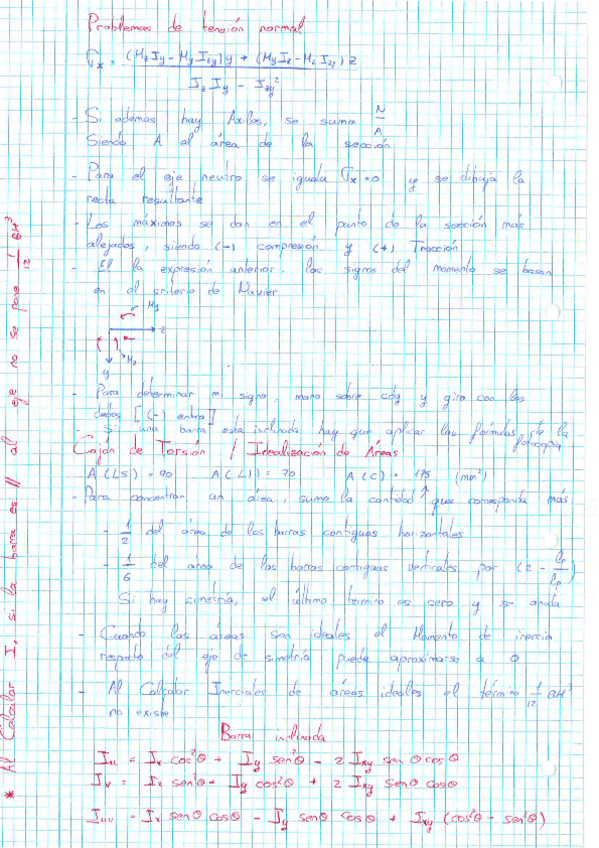 Problemas de tensión normal
σx = (Mz Iy - My Izy) y + (My Iz - Mz Izy) z / Iz Iy - Izy²
- Si ademas hay Axiles, se suma N/A
Siendo A el área de la sección
- Para el eje neutro se iguala σx = 0 y se dibuja la
recta resultante
- Los máximos se dan en el punto de la sección más
alejados, siendo (-) compresión y (+) Tracción
- El la expresión anterior, los signos del momento se basan
en el criterio de Navier
My
z
Mz
y
- Para determinar mi signo, mano sobre cdg y giro con los
dedos [(-) entra]
- Si una barra esta inclinada hay que aplicar las fórmulas de la
fotocopia
Cajón de Torsión / Idealización de Áreas
A (LS) = 90 A (LI) = 70 A (C) = 175 (mm²)
- Para concentrar un área, sumo la cantidad ↑ que corresponda más
- 1/2 del área de las barras contiguas horizontales
- 1/6 del área de las barras contiguas verticales por (2 -
Si hay simetría, el último termino es cero y se anula
- Cuando las áreas son ideales el Momento de inercia
respecto del eje de simetría puede aproximarse a 0
- Al Calcular Inerciales de áreas ideales el término 1/12 BH³
no existe
Barra inclinada
Iu = Ix cos²θ + Iy sen²θ - 2 Ixy sen θ cos θ
Iv = Ix sen²θ + Iy cos²θ + 2 Ixy senθ cosθ
Iuv = Ix senθ cosθ - Iy senθ cosθ + Ixy (cos²θ - sen²θ)
* Al Calcular I, si la barra es // al eje no se pone 1/12 BH³